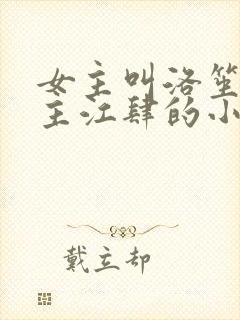 女主叫洛笙
主江肆的小
戴立却